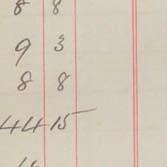 8 8
9 3
8 8
44 15